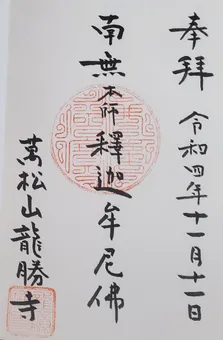 奉拜
令和四年十一月十一日
南無本師釋迦牟尼佛
萬松山龍勝寺